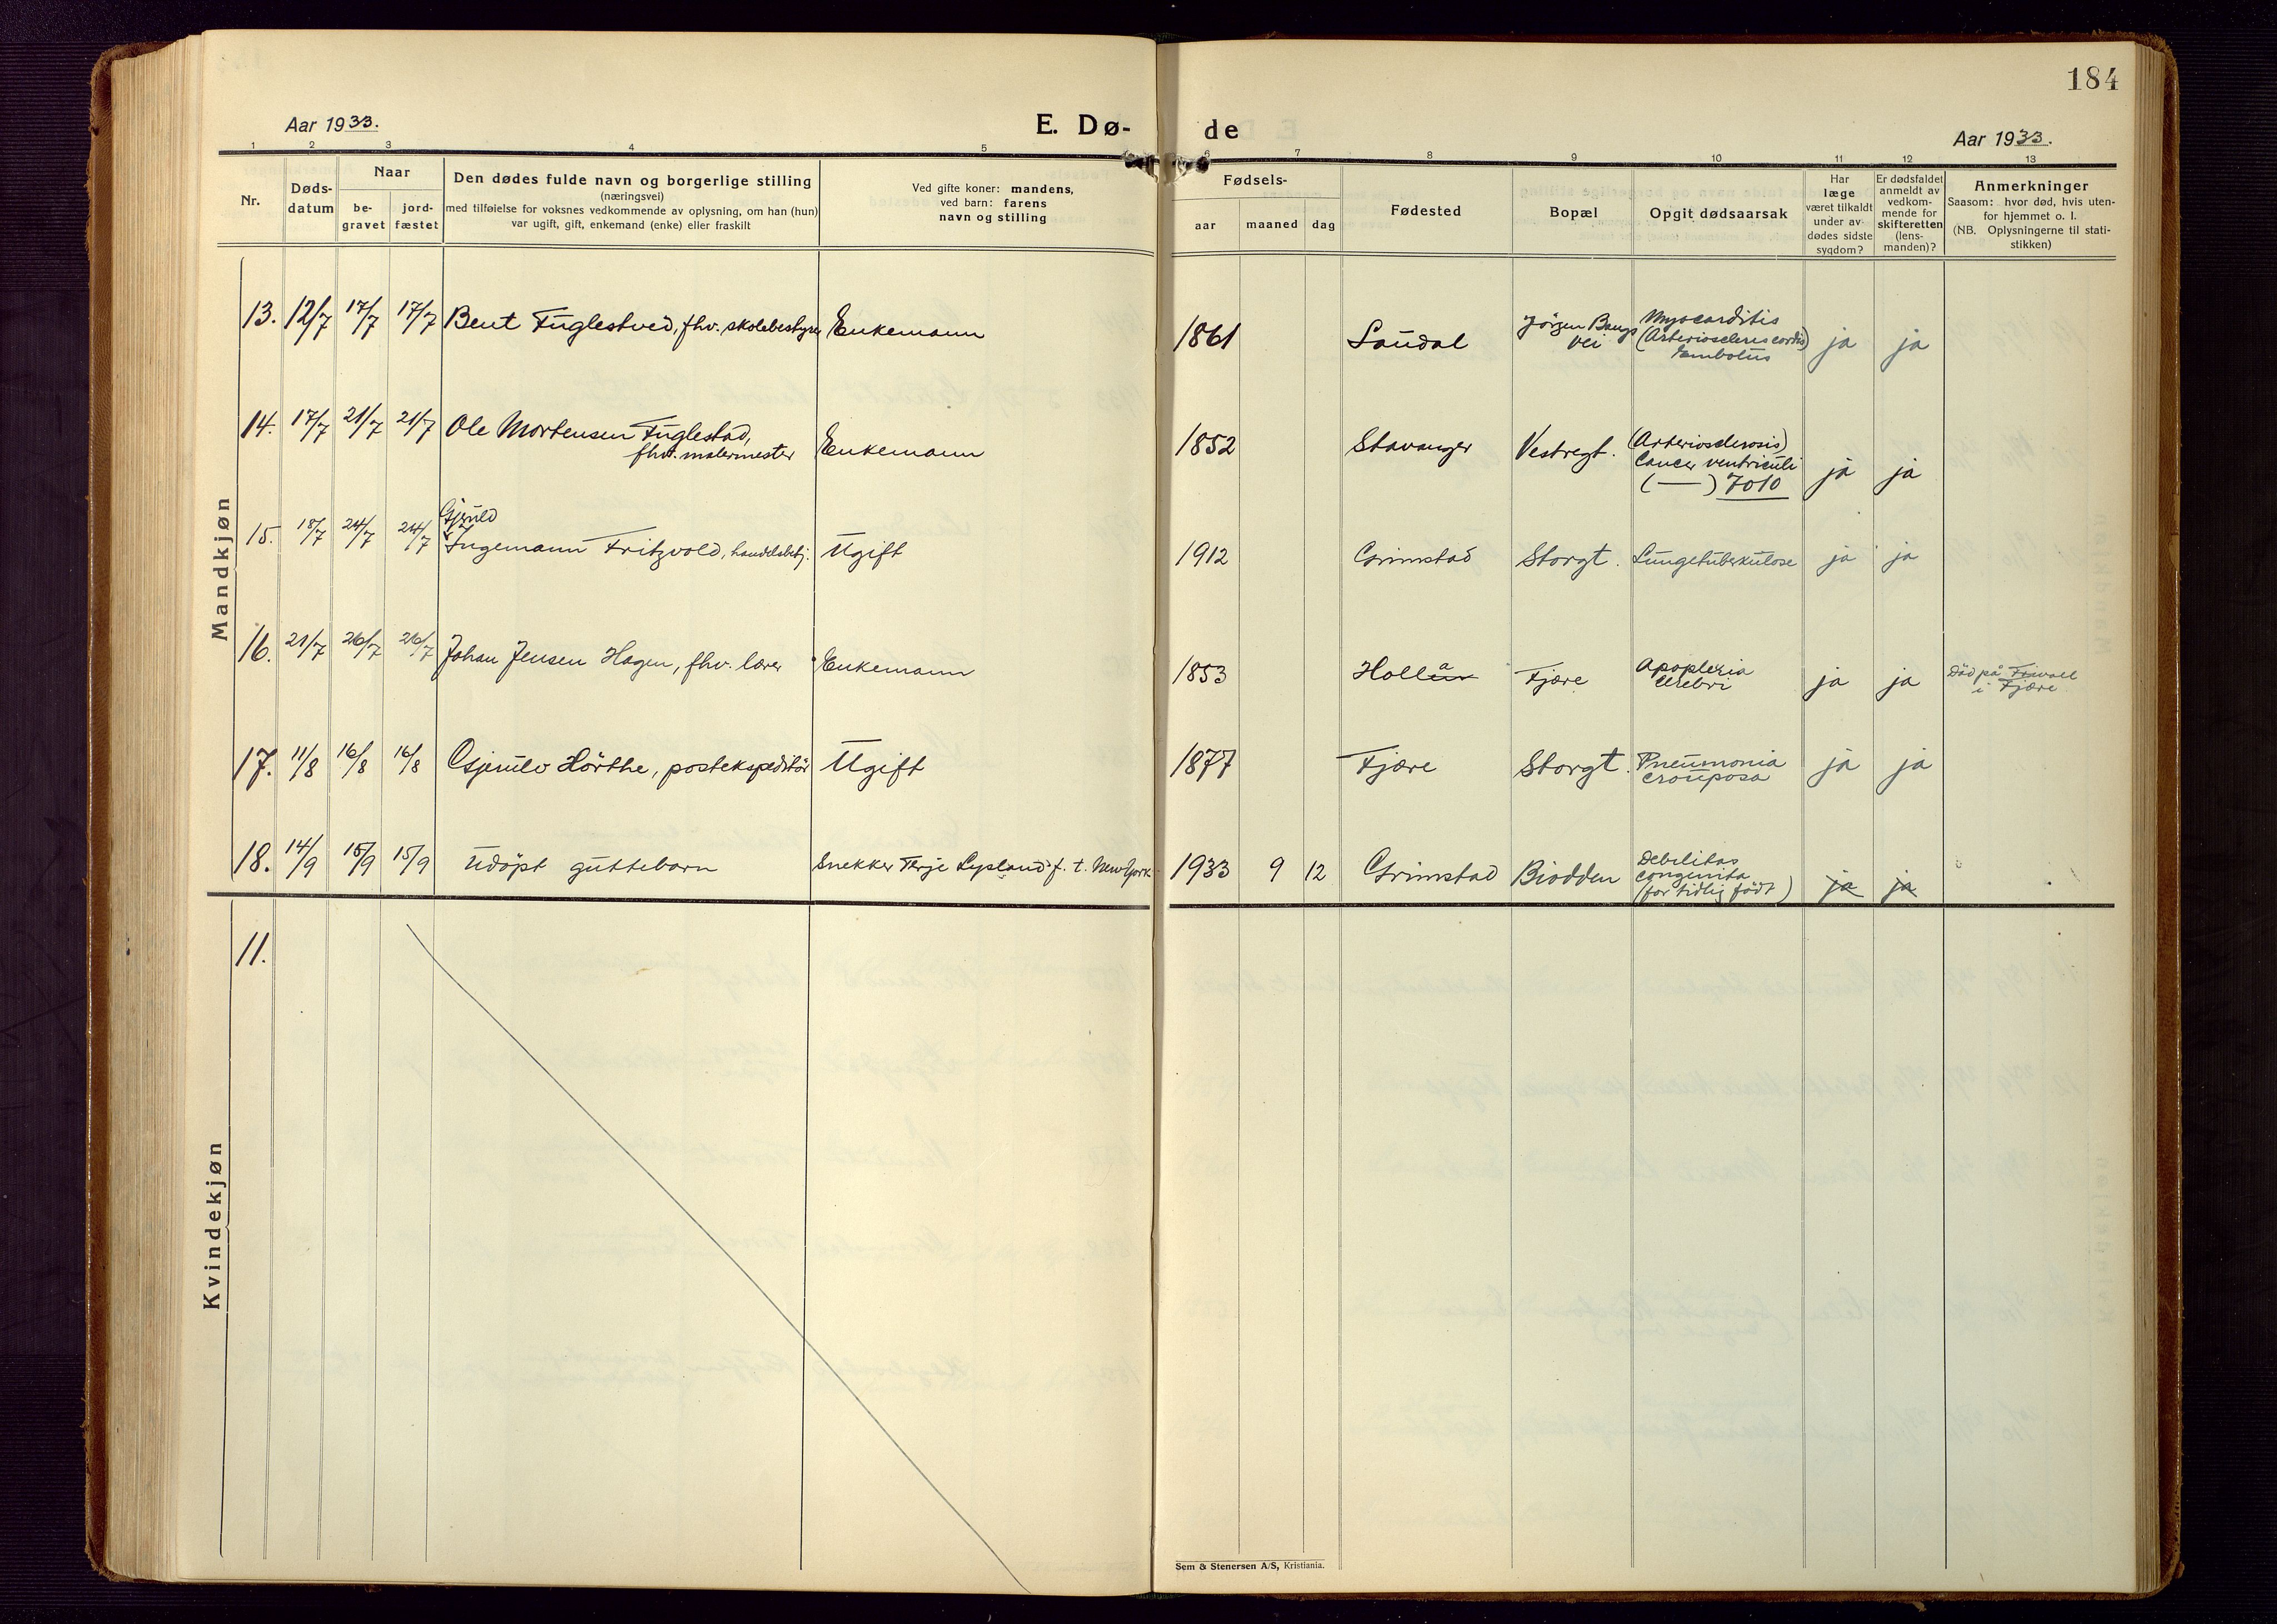 184
Aar 1933.
E. Dø-
de
Aar 1933.
1 2 3 4 5 6 7 8 9 10 11 12 13
Nr.
Døds-
datum
Naar
be-
gravet
jord-
fæstet
Den dødes fulde navn og borgerlige stilling
(næringsvei)
med tilføielse for voksnes vedkommende av oplysning, om han (hun)
var ugift, gift, enkemand (enke) eller fraskilt
Ved gifte koner: mandens,
ved barn: farens
navn og stilling
Fødsels-
aar maaned dag
Fødested
Bopæl
Opgit dødsaarsak
Har
læge
været tilkaldt
under av-
dødes sidste
sygdom?
Er dødsfaldet
anmeldt av
vedkom-
mende for
skifteretten
(lens-
manden)?
Anmerkninger
Saasom: hvor død, hvis uten-
for hjemmet o. l.
(NB. Oplysningerne til stati-
stikken)
Mandkjøn
13. 12/7 17/7 17/7 Bent Fuglestved, fhv. skolebestyrer Enkemann 1861 Laudal Jörgen Bangs vei Myocarditis (Arterioscleris cordis) Embolus ja ja
14. 17/7 21/7 21/7 Ole Mortensen Fuglestad,
fhv. malermester Enkemann 1852 Stavanger Vestregt. (Arteriosclerosis) Cancer ventriculi ( — ) 7010 ja ja
Gjeruld
15. 18/7 24/7 24/7 Ingemann Fritzvold, handelsbetj. Ugift 1912 Grimstad Storgt. Lungetuberkulose ja ja
16. 21/7 26/7 26/7 Johan Jensen Hagen, fhv. lærer Enkemann 1853 Hollen a Fjære Apoplexia cerebri ja ja Död på i Fjære
17. 11/8 16/8 16/8 Gjerulv Hörthe, postekspeditör Ugift 1877 Fjære Storgt. Pneumonia crouposa ja ja
18. 14/9 15/9 15/9 Udöpt guttebarn Snekker Terje Lysland f. t. New York 1933 9 12 Grimstad Biodden Debilitas congenita (for tidlig födt) ja ja
Kvindekjøn
11.
Sem & Stenersen A/S, Kristiania.